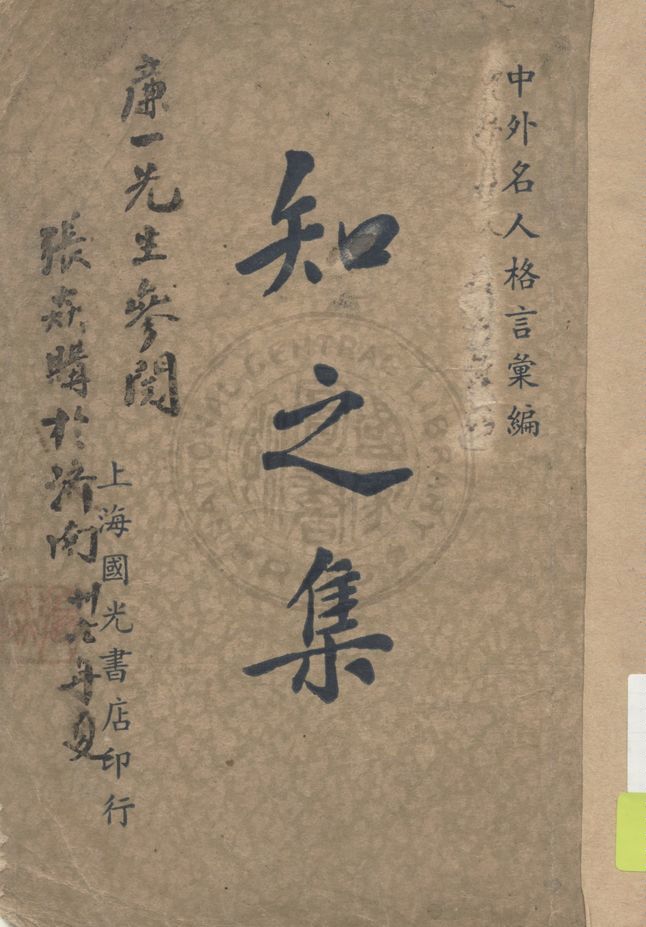 中外名人格言彙編
知之集
廉一先生參閱
上海國光書店印行
張 購於濟南
NATIONAL CENTRAL LIBRARY